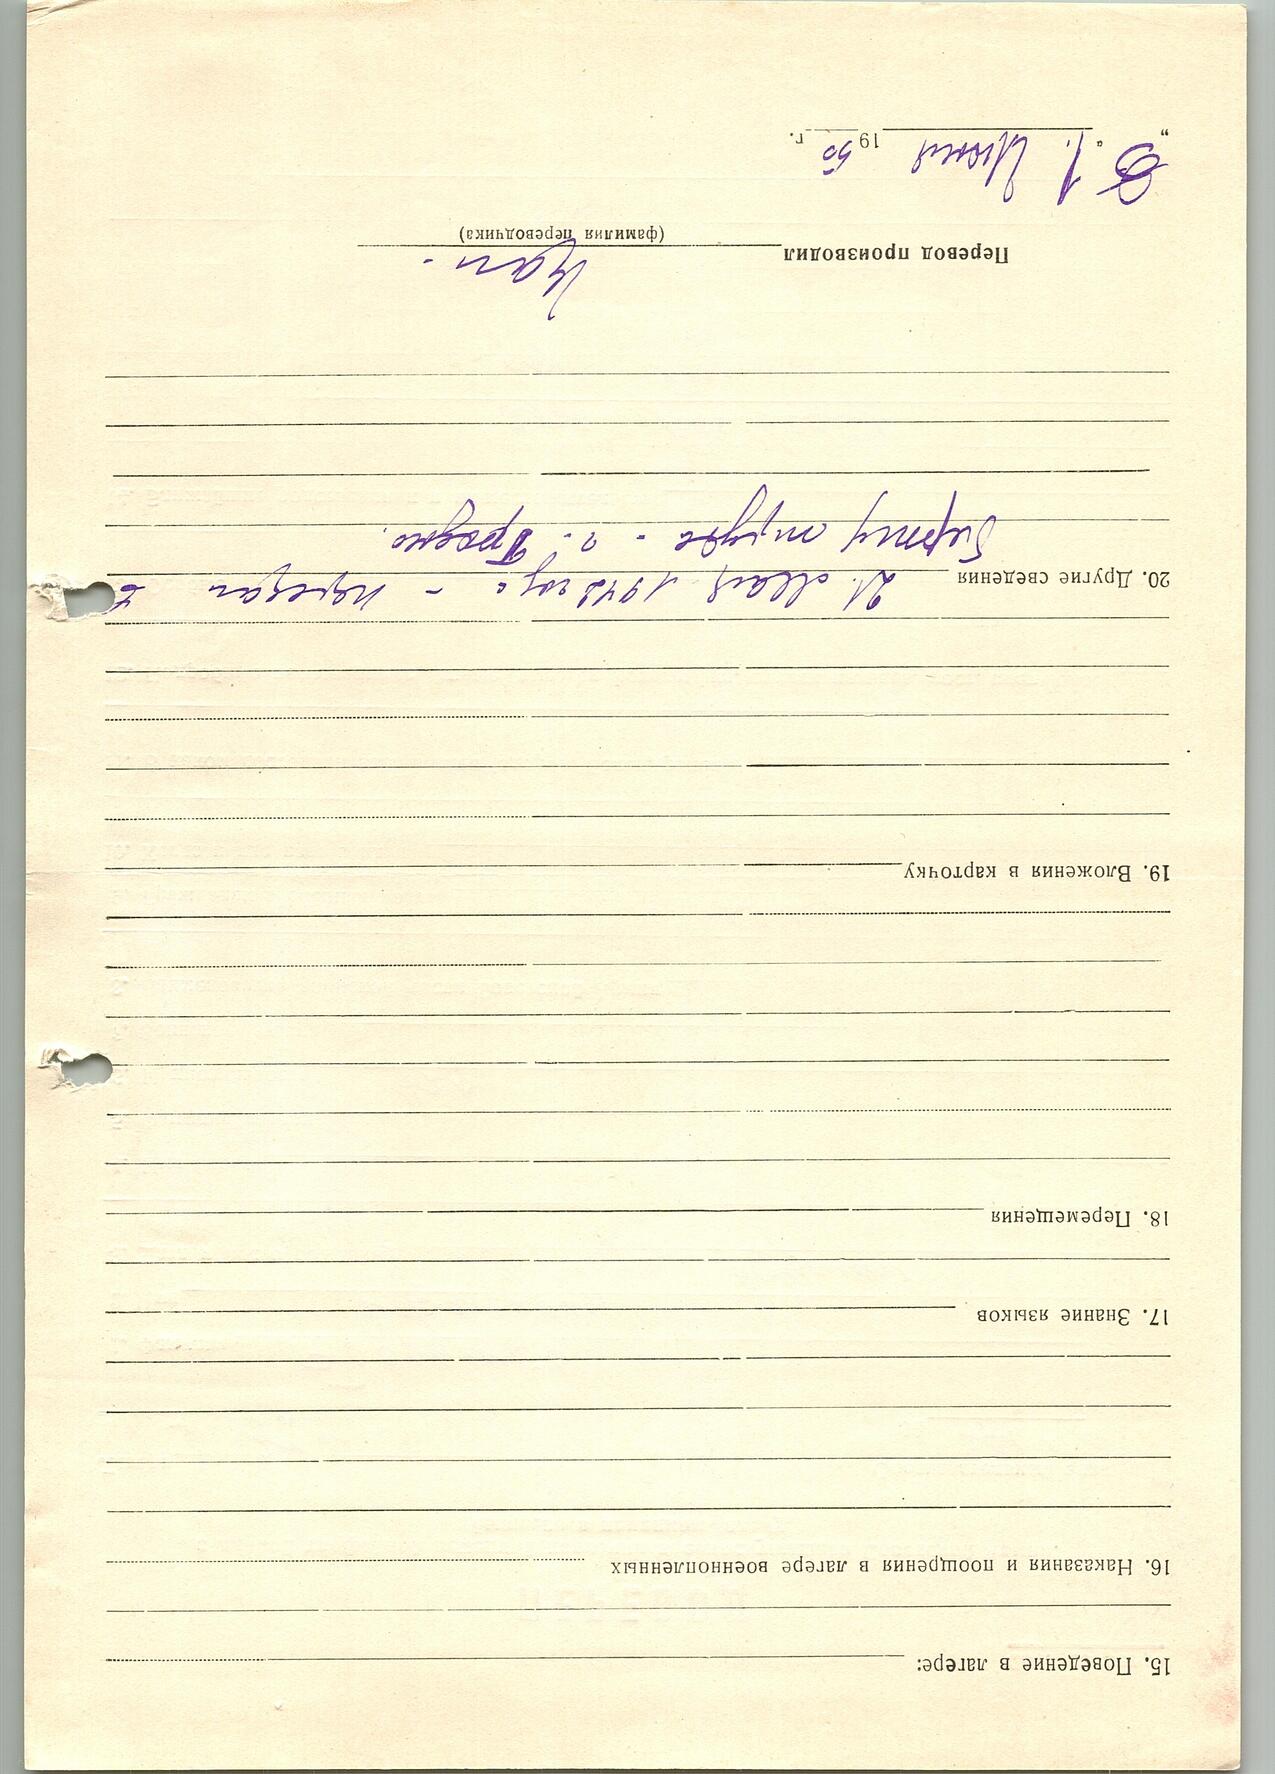 15. Поведение в лагере:
16. Наказания и поощрения в лагере военнопленных
17. Знание языков
18. Перемещения
19. Вложения в карточку
20. Другие сведения 21. Мая 1942 года - передан в
биржу труда - г. Гродно.
Перевод производил
(фамилия переводчика)
" 1. " Июня 1950 г.